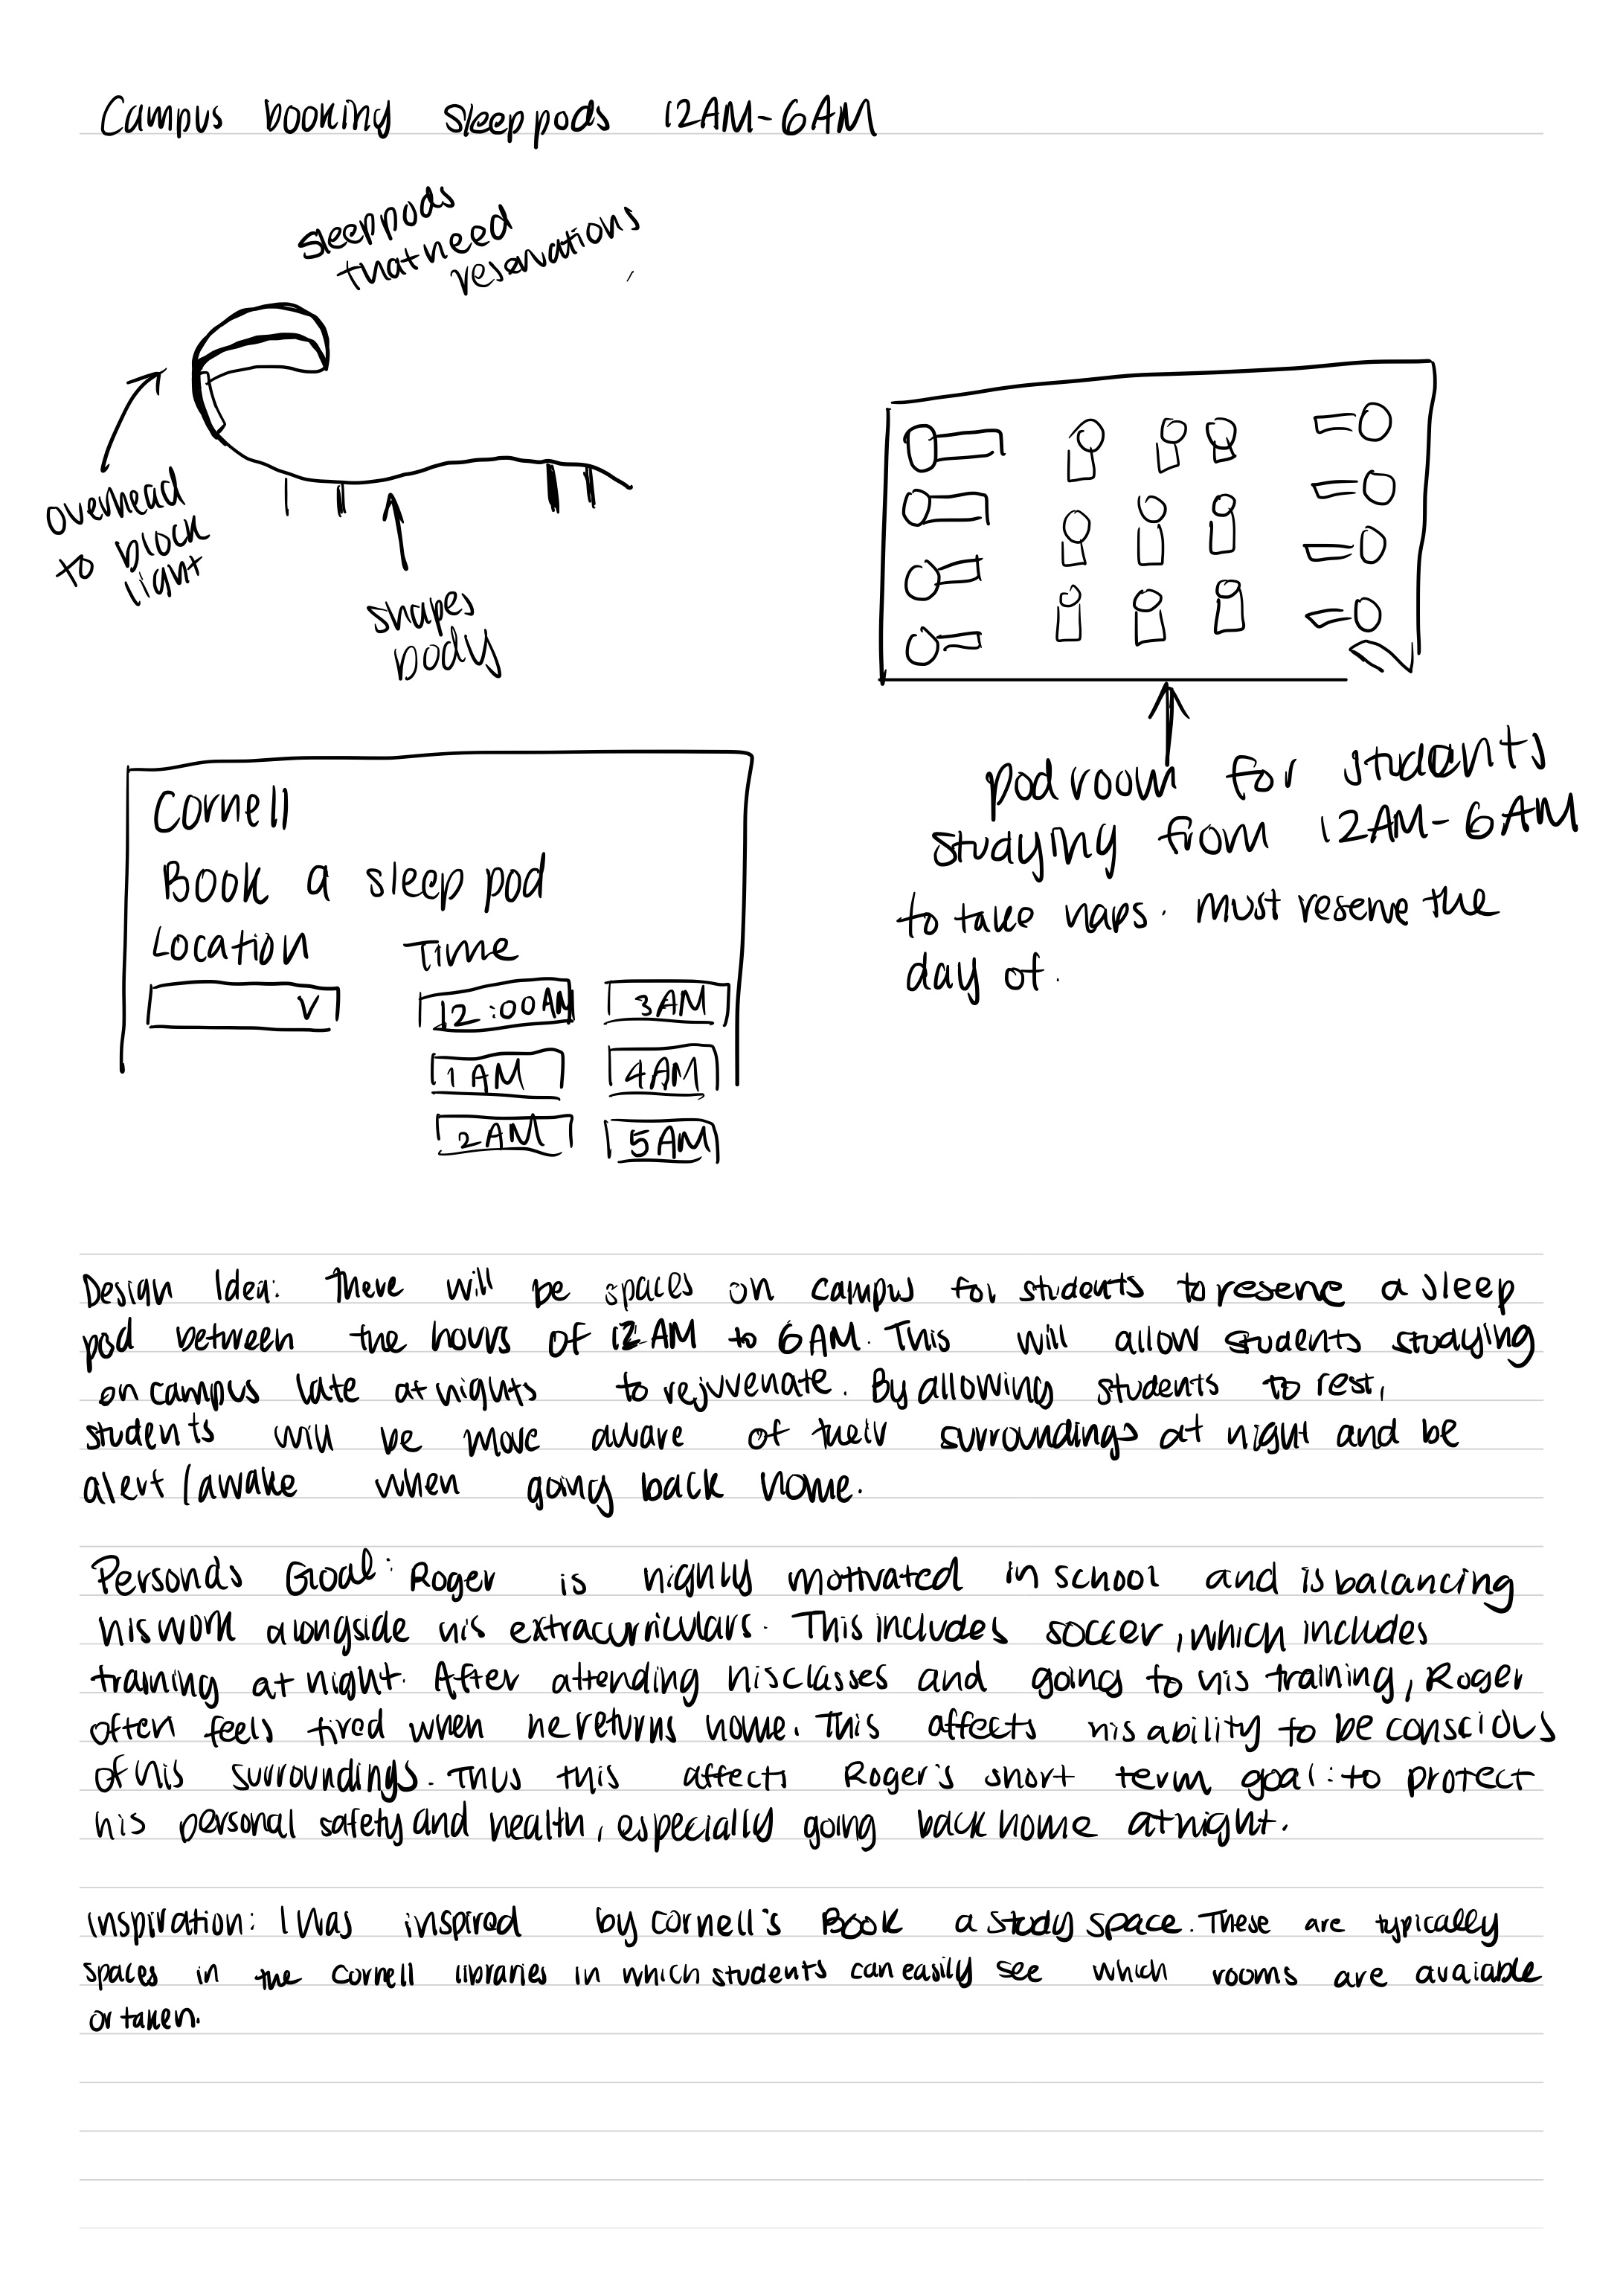 Campus booking sleep pods 12AM-6AM
sleep pods
that need
reservations
overhead
to block
light
shapes
body
pod room for students
studying from 12AM-6AM
to take naps. must reserve the
day of.
Cornell
Book a sleep pod
Location Time
V 12:00AM 3AM
1AM 4AM
2AM 5AM
Design Idea: There will be spaces on campus for students to reserve a sleep
pod between the hours of 12AM to 6AM. This will allow students studying
on campus late at nights to rejuvenate. By allowing students to rest,
students will be more aware of their surroundings at night and be
alert/awake when going back home.
Persona's Goal: Roger is highly motivated in school and is balancing
his work alongside his extracurriculars. This includes soccer, which includes
training at night. After attending his classes and going to his training, Roger
often feels tired when he returns home. This affects his ability to be conscious
of his surroundings. Thus this affects Roger's short term goal: to protect
his personal safety and health, especially going back home at night.
Inspiration: I was inspired by Cornell's Book a study space. These are typically
spaces in the Cornell libraries in which students can easily see which rooms are avaiable
or taken.